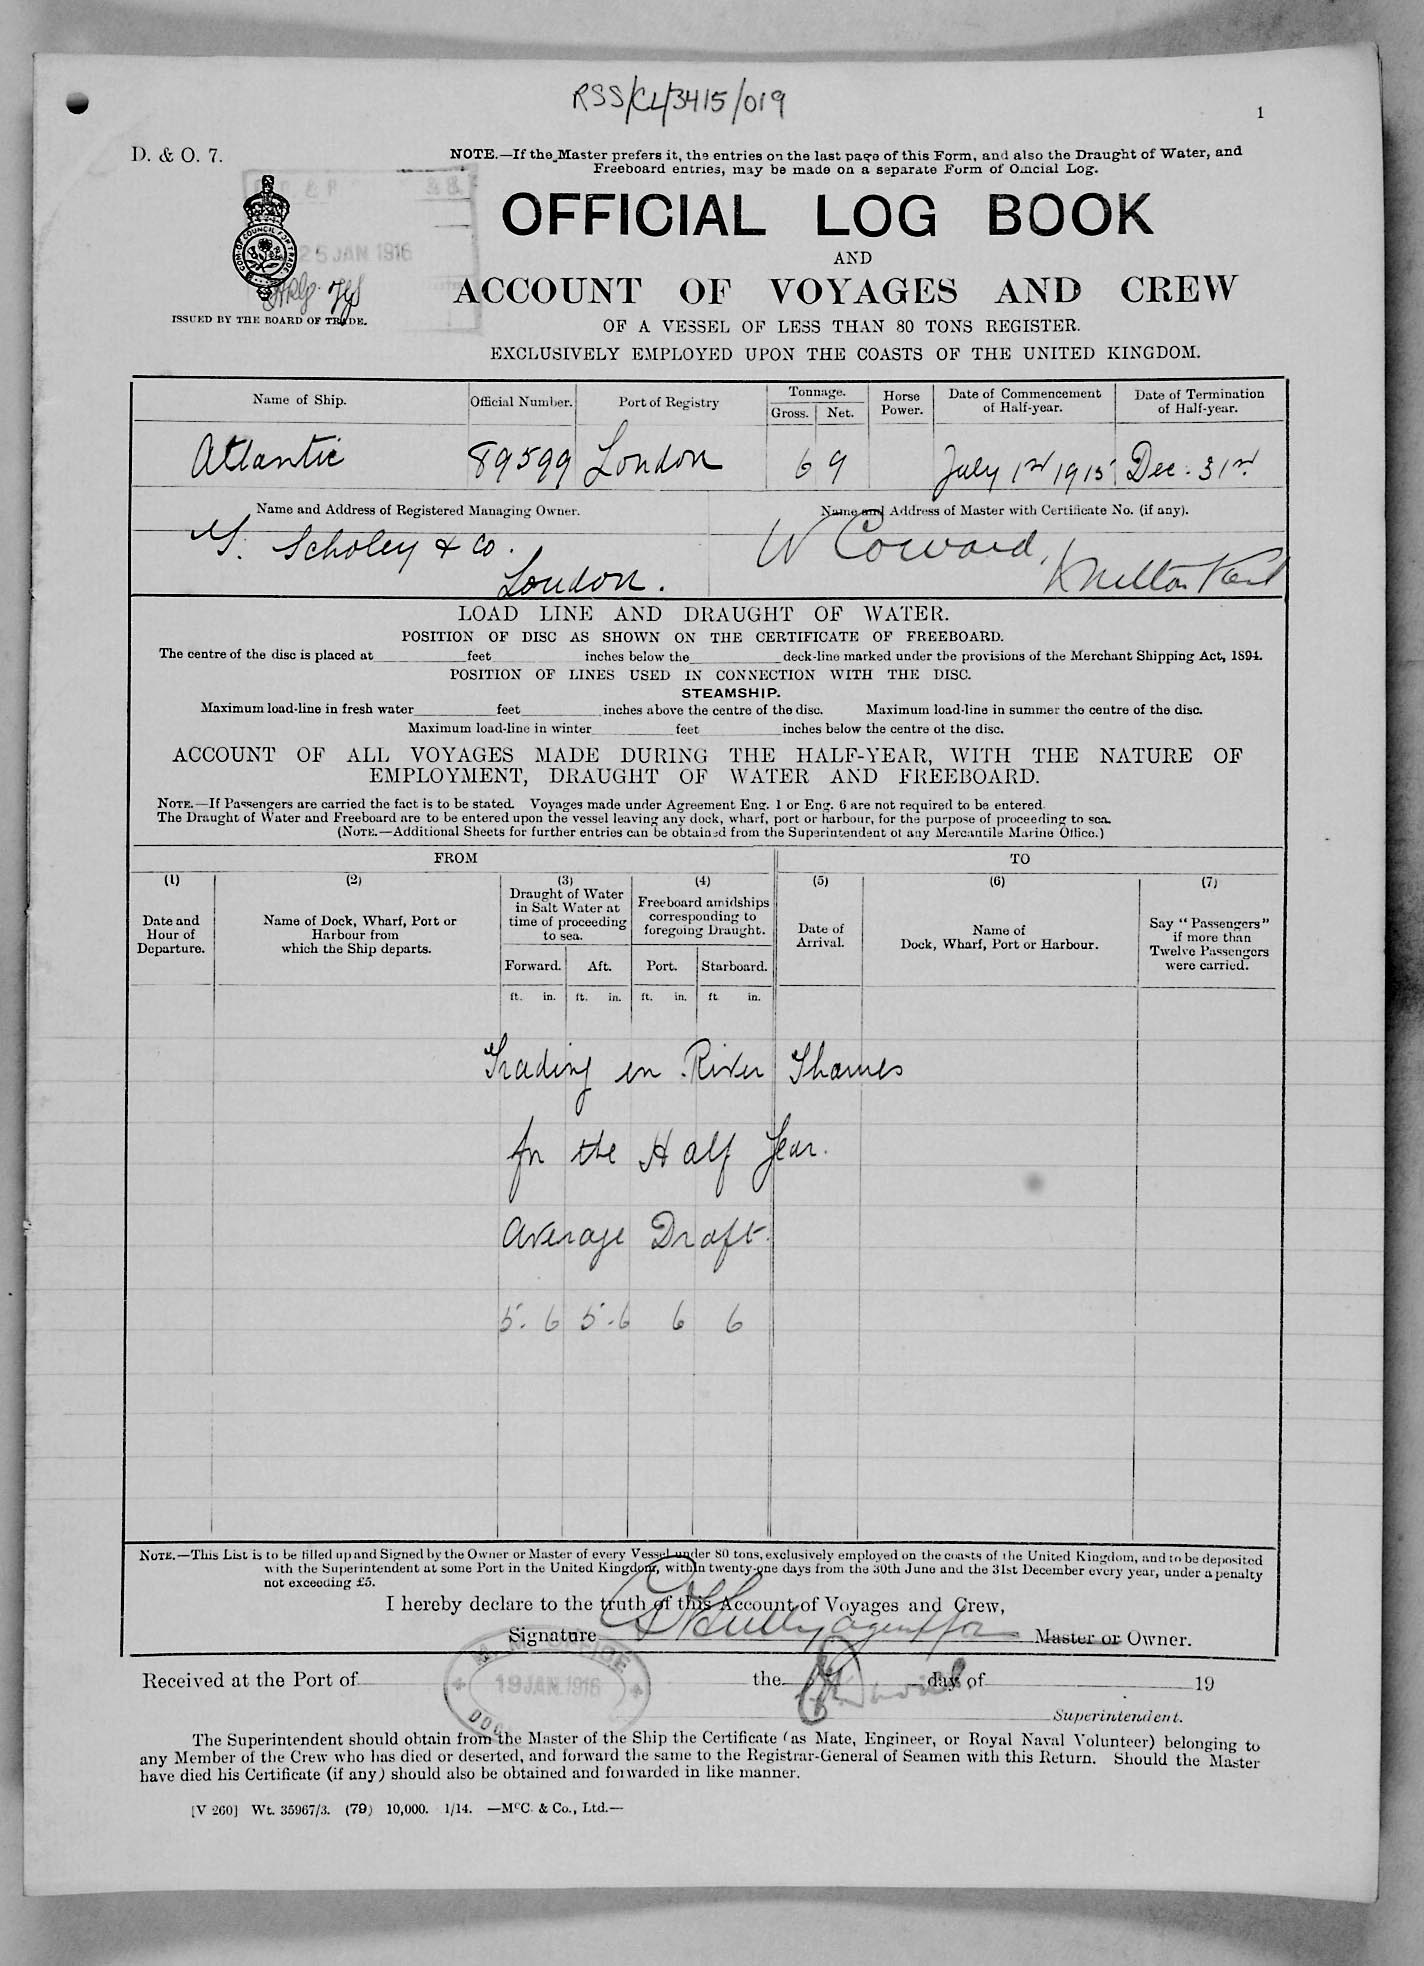 RSS/CL/3415/019
1
D. & O. 7.
NOTE.—If the Master prefers it, the entries on the last page of this Form, and also the Draught of Water, and
Freeboard entries, may be made on a separate Form of Official Log.
OFFICIAL LOG BOOK
AND
ACCOUNT OF VOYAGES AND CREW
OF A VESSEL OF LESS THAN 80 TONS REGISTER.
EXCLUSIVELY EMPLOYED UPON THE COASTS OF THE UNITED KINGDOM.
25 JAN 1916
COM. OF COUNCIL FOR TRADE
ISSUED BY THE BOARD OF TRADE.
Name of Ship. Official Number. Port of Registry Tonnage. Gross. Net. Horse Power. Date of Commencement of Half-year. Date of Termination of Half-year.
Atlantic 89599 London 69 July 1st 1915 Dec. 31st
Name and Address of Registered Managing Owner. Name and Address of Master with Certificate No. (if any).
Scholey & Co. W Coward,
London. Milton Kent
LOAD LINE AND DRAUGHT OF WATER.
POSITION OF DISC AS SHOWN ON THE CERTIFICATE OF FREEBOARD.
The centre of the disc is placed at feet inches below the deck-line marked under the provisions of the Merchant Shipping Act, 1894.
POSITION OF LINES USED IN CONNECTION WITH THE DISC.
STEAMSHIP.
Maximum load-line in fresh water feet inches above the centre of the disc. Maximum load-line in summer the centre of the disc.
Maximum load-line in winter feet inches below the centre of the disc.
ACCOUNT OF ALL VOYAGES MADE DURING THE HALF-YEAR, WITH THE NATURE OF
EMPLOYMENT, DRAUGHT OF WATER AND FREEBOARD.
NOTE.—If Passengers are carried the fact is to be stated. Voyages made under Agreement Eng. 1 or Eng. 6 are not required to be entered.
The Draught of Water and Freeboard are to be entered upon the vessel leaving any dock, wharf, port or harbour, for the purpose of proceeding to sea.
(NOTE.—Additional Sheets for further entries can be obtained from the Superintendent of any Mercantile Marine Office.)
FROM TO
(1) (2) (3) (4) (5) (6) (7)
Date and Hour of Departure. Name of Dock, Wharf, Port or Harbour from which the Ship departs. Draught of Water in Salt Water at time of proceeding to sea. Freeboard amidships corresponding to foregoing Draught. Date of Arrival. Name of Dock, Wharf, Port or Harbour. Say "Passengers" if more than Twelve Passengers were carried.
Forward. Aft. Port. Starboard.
ft. in. ft. in. ft. in. ft in.
Trading in River Thames
for the Half Year.
Average Draft.
5. 6 5. 6 6 6
NOTE.—This List is to be filled up and Signed by the Owner or Master of every Vessel under 80 tons, exclusively employed on the coasts of the United Kingdom, and to be deposited
with the Superintendent at some Port in the United Kingdom, within twenty-one days from the 30th June and the 31st December every year, under a penalty
not exceeding £5.
I hereby declare to the truth of this Account of Voyages and Crew,
Signature agent for Master or Owner.
M. M. OFFICE
19 JAN. 1916
Received at the Port of the day of 19
Superintendent.
The Superintendent should obtain from the Master of the Ship the Certificate (as Mate, Engineer, or Royal Naval Volunteer) belonging to
any Member of the Crew who has died or deserted, and forward the same to the Registrar-General of Seamen with this Return. Should the Master
have died his Certificate (if any) should also be obtained and forwarded in like manner.
[V 260] Wt. 35967/3. (79) 10,000. 1/14. —McC. & Co., Ltd.—